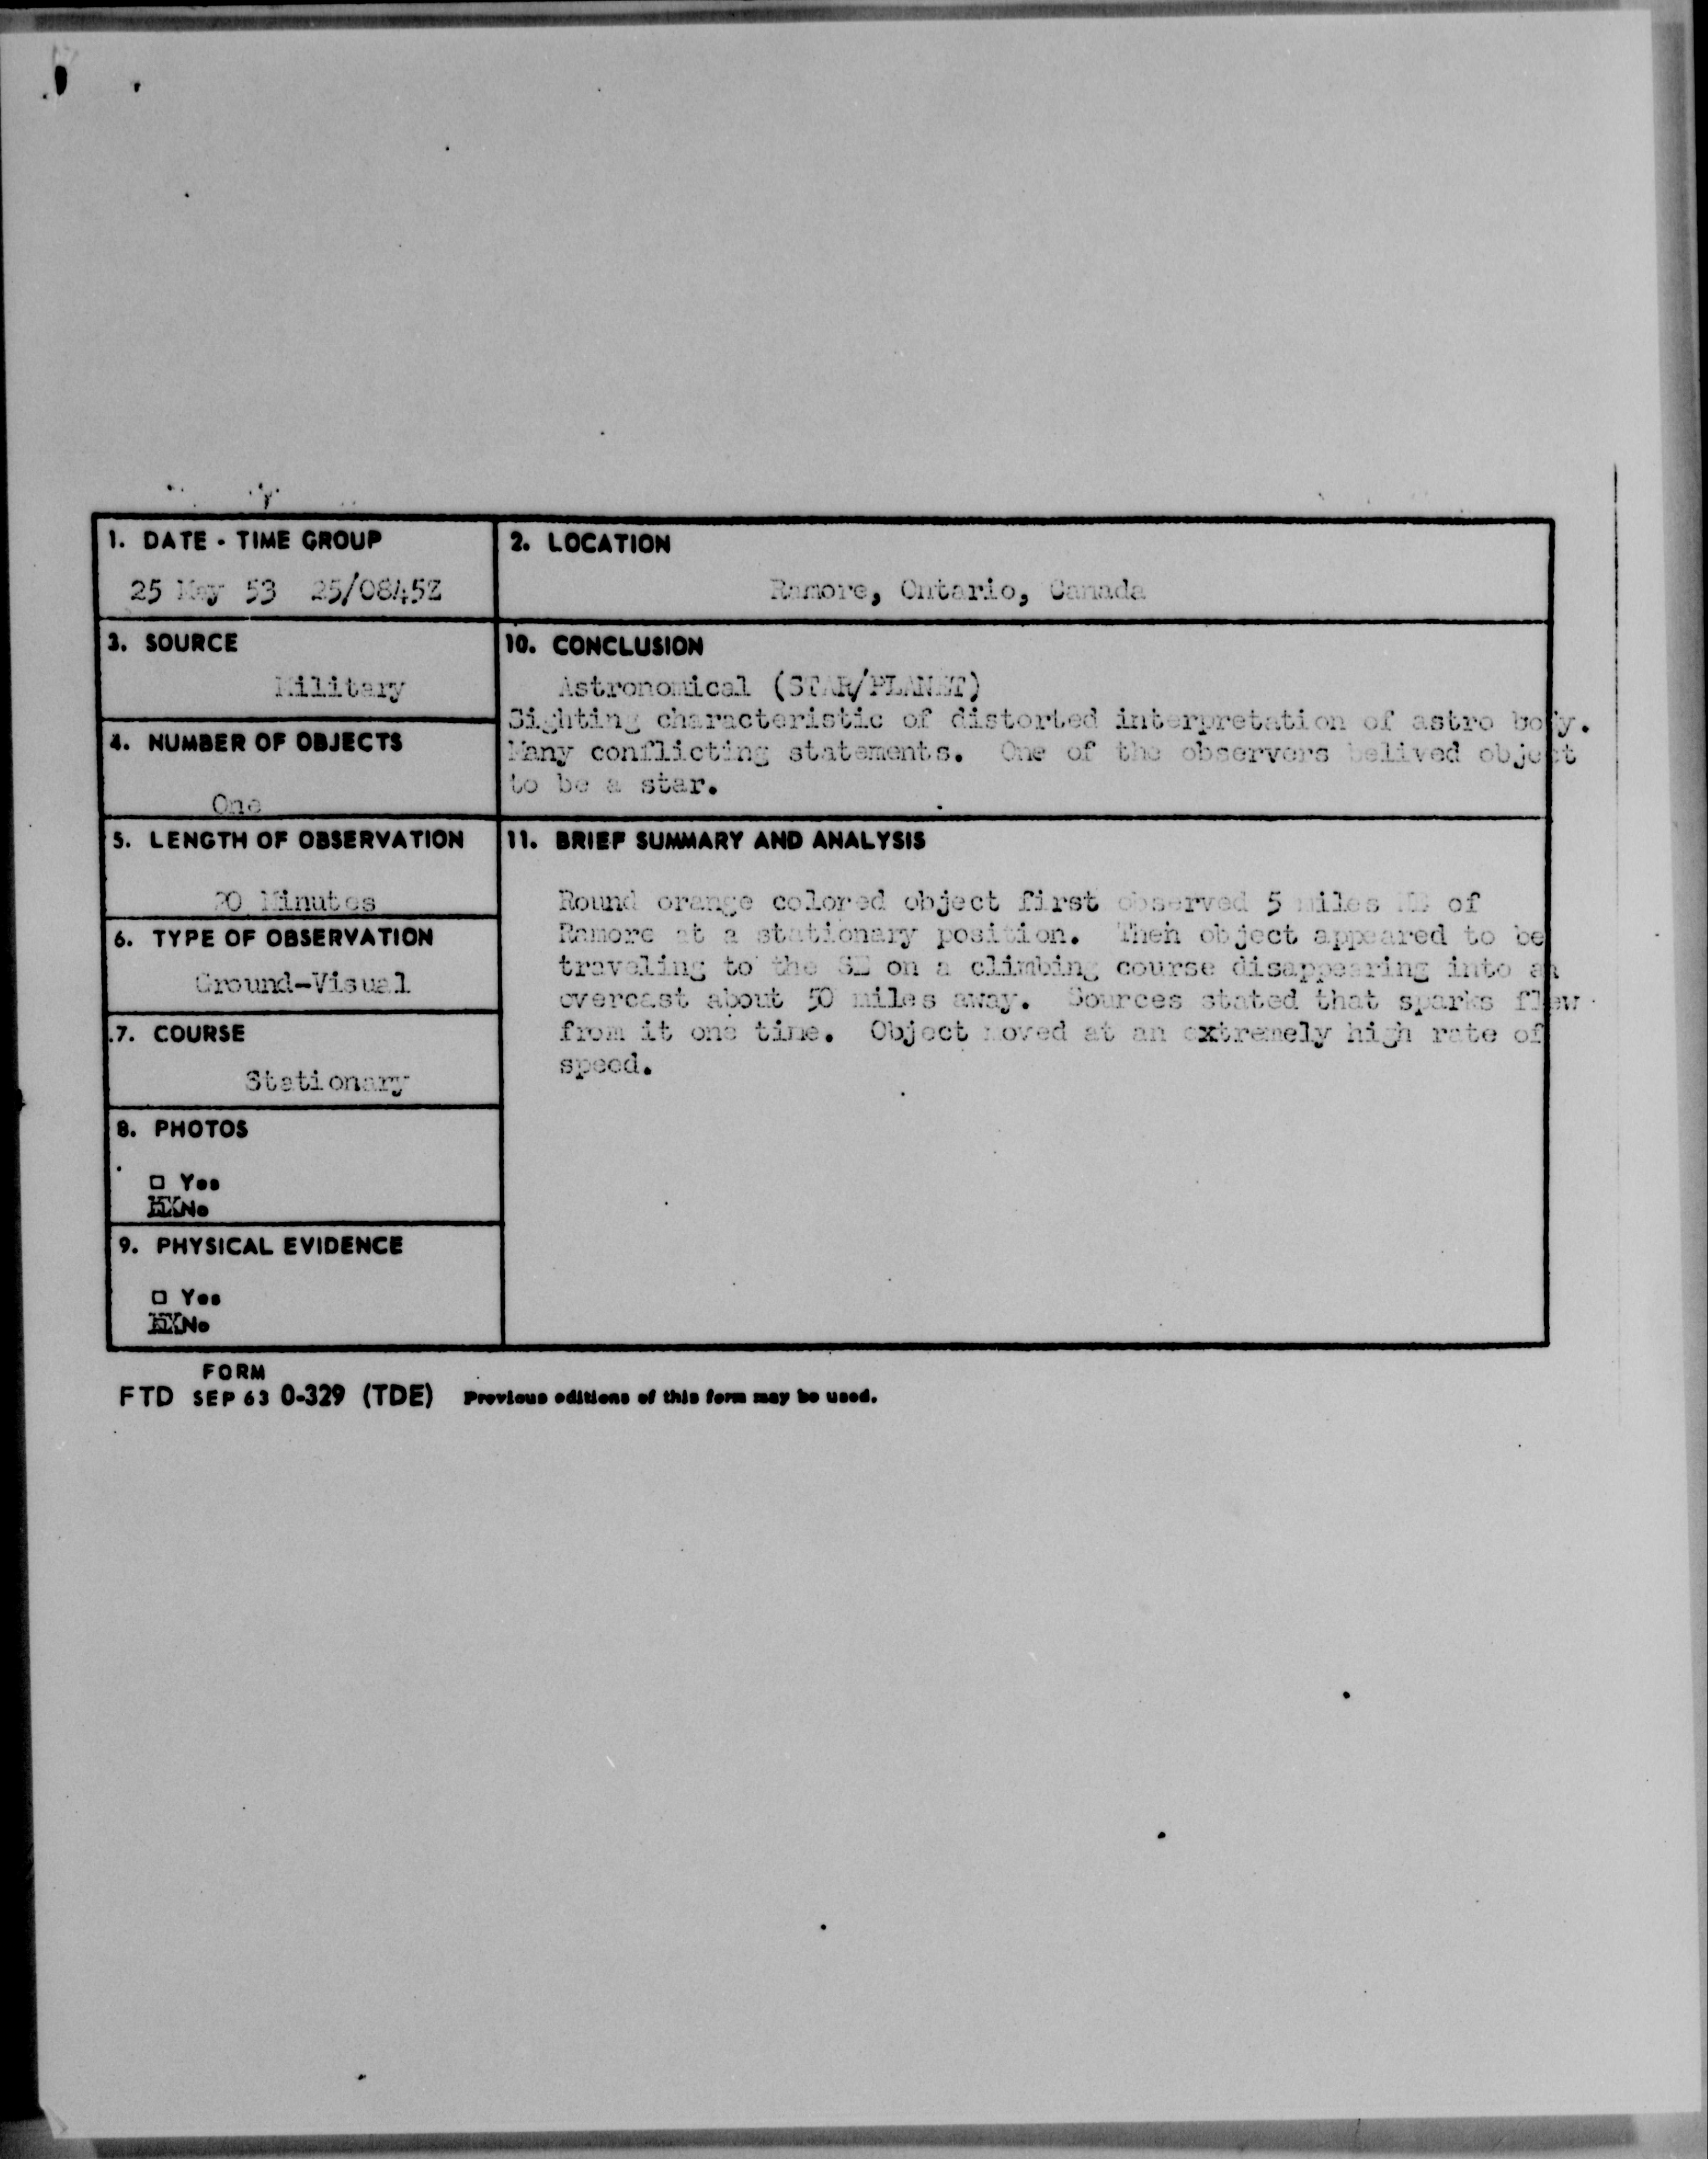 1. DATE - TIME GROUP
25 May 53 25/0845Z
2. LOCATION
Ramore, Ontario, Canada
3. SOURCE
Military
10. CONCLUSION
Astronomical (STAR/PLANET)
Sighting characteristic of distorted interpretation of astro body.
Many conflicting statements. One of the observers belived object
to be a star.
4. NUMBER OF OBJECTS
One
5. LENGTH OF OBSERVATION
20 Minutes
11. BRIEF SUMMARY AND ANALYSIS
Round orange colored object first observed 5 miles of
Ramore at a stationary position. Then object appeared to be
traveling to the SE on a climbing course disappearing into an
overcast about 50 miles away. Sources stated that sparks flew
from it one time. Object moved at an extremely high rate of
speed.
6. TYPE OF OBSERVATION
Ground-Visual
7. COURSE
Stationary
8. PHOTOS
□ Yes
XX No
9. PHYSICAL EVIDENCE
□ Yes
XX No
FORM
FTD SEP 63 0-329 (TDE) Previous editions of this form may be used.